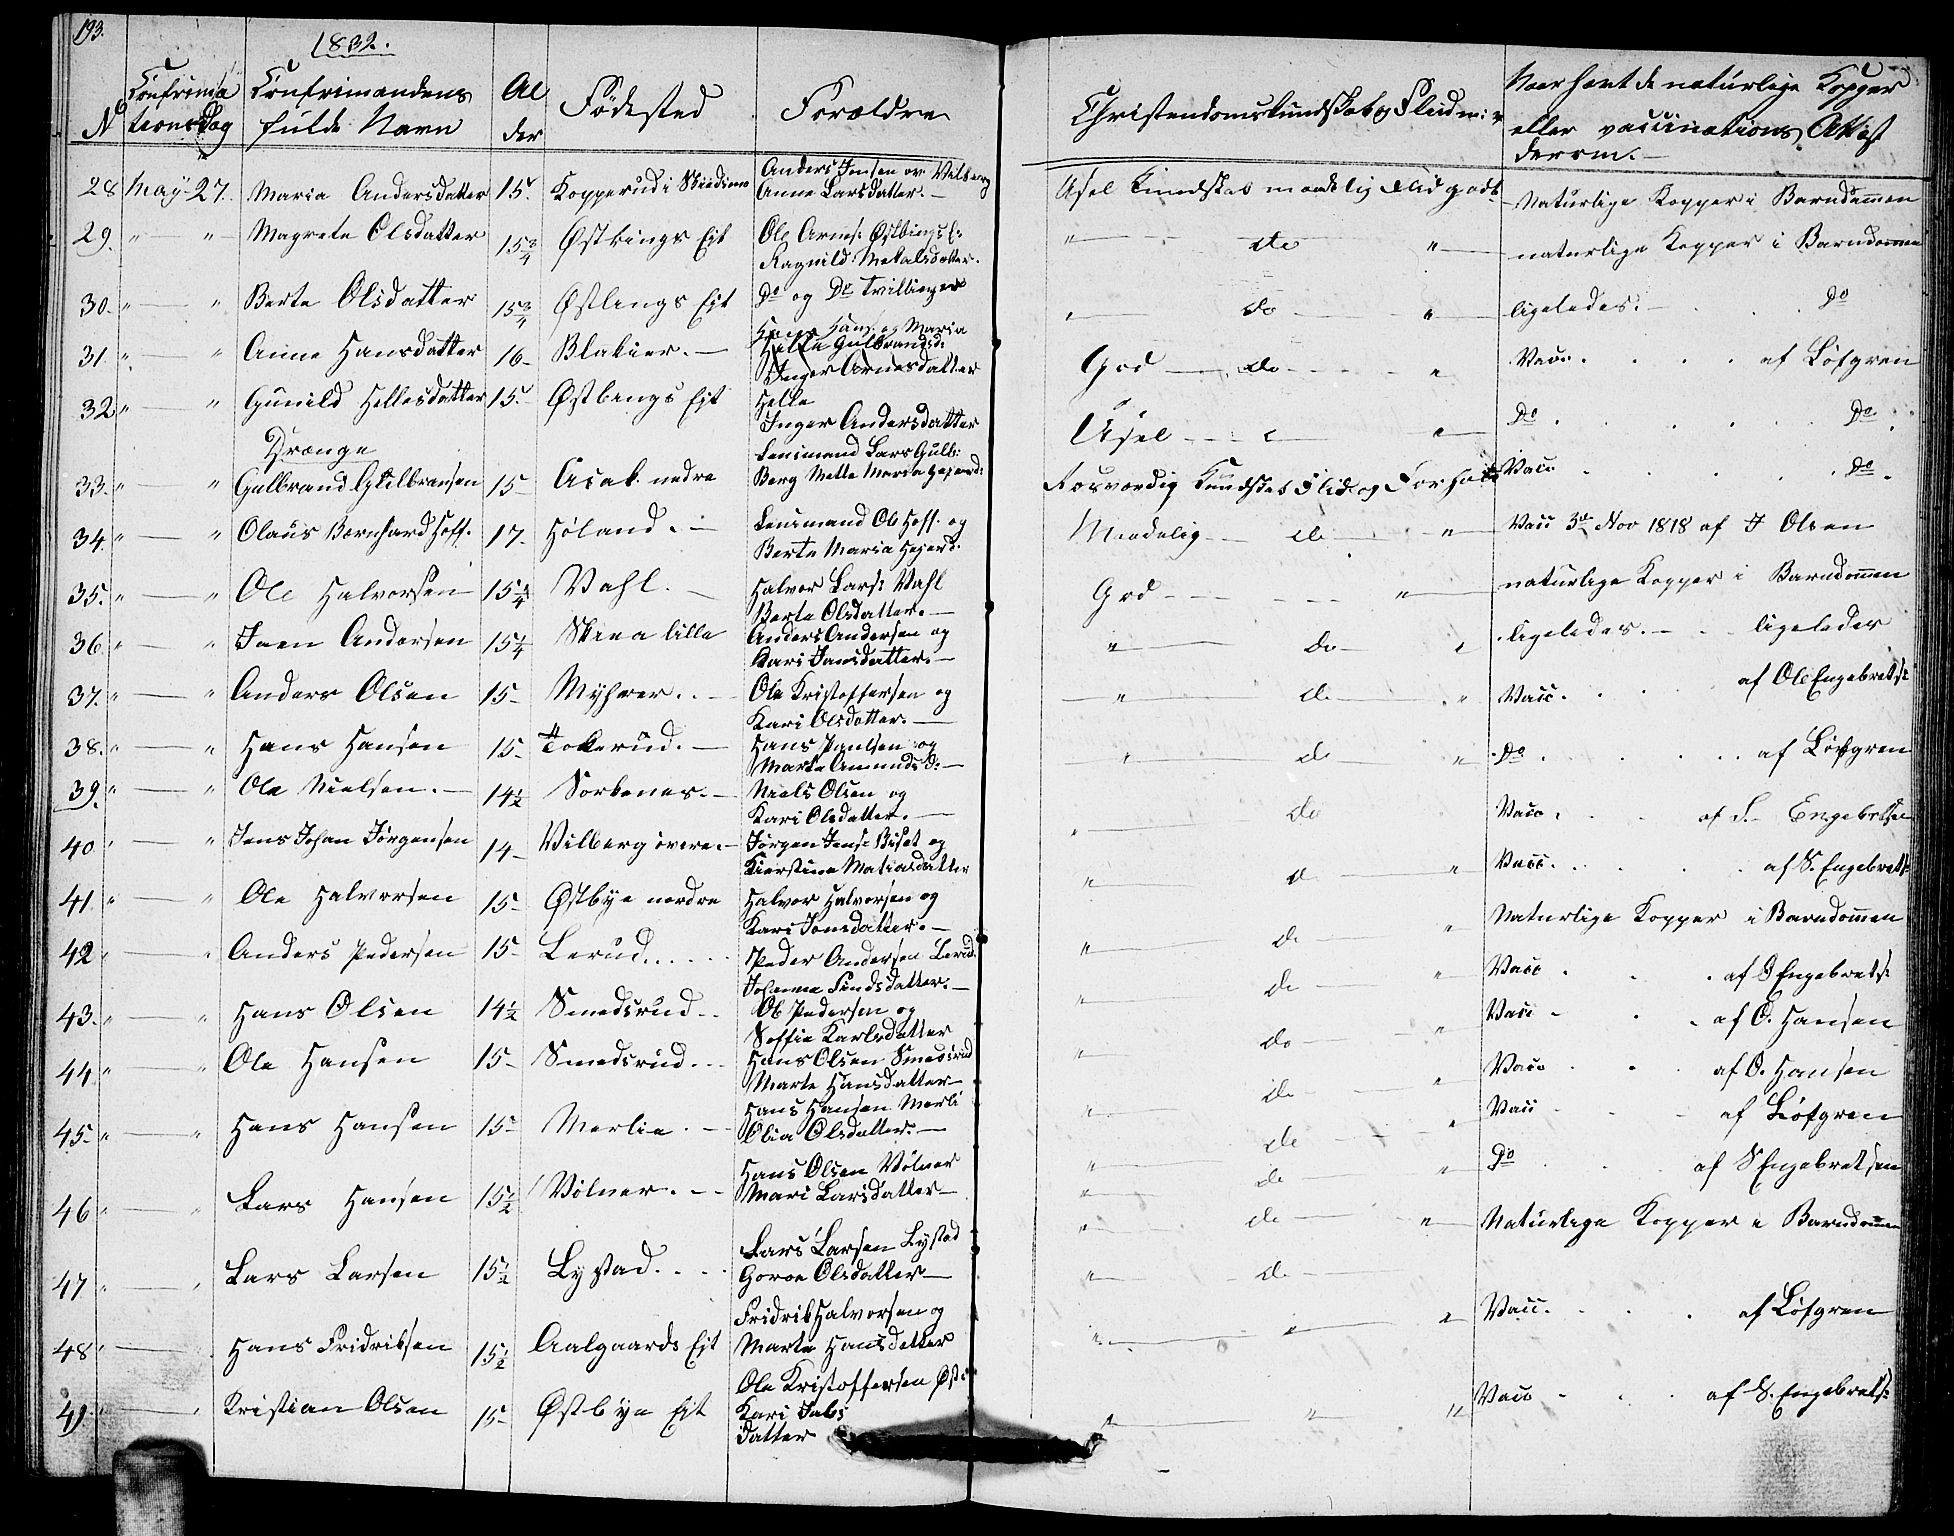 193.
1832.
N
Confrima
tionsdag
Confrimandens
fulde Navn
Al
der
Fødested
Forældre
Christendomskundskab og Flid
Naar havt de naturlige Kopper
eller vaccinations Attest
derom.
28 May 27. Maria Andersdatter 15. Kopperud i Anders Jensen ov Vilberg
Anne Larsdatter. Usel Kundskab maadelig Flid godt Naturlige Kopper i Barndommen
29. " " Magrete Olsdatter 15 3/4 Østbings Ejt Ole Arnes: Østbings E:
Ragnild Mekalsdatter. " do " naturlige Kopper i Barndommen
30. " " Berte Olsdatter 15 3/4 Østbings Ejt Do og Do Tvillinger " do " ligeledes. Do
31. " " Anne Hansdatter 16 Blakier. Hans Hans: og Maria
Helle Gulbrandsd:
Inger Arnesdatter God do " Vacc. af Løfgren
32 " " Gunild Hellesdatter 15 Østbengs Ejt Helle
Inger Andersdatter Usel " " Do Do
Drænge
33. " " Gulbrand Gulbransen 15 Asak nedre Lensmand Lars Gulb:
Berg Mette Maria Hejerd: Rosværdig Kundskab Flid og Forhold Vacc Do.
34. " " Olaus Bernhard Hoff. 17. Høland. Lensmand Ole Hoff. og
Berte Maria Hejerd. Maadelig do " Vacc 3de Nov 1818 af J Olsen
35. " " Ole Halvorsen 15 1/4 Vahl. Halvor Lars: Vahl
Berte Olsdatter. God " naturlige Kopper i Barndommen
36. " " Joen Andersen 15 1/4 Skiea lille Anders Andersen og
Kari Jansdatter. " do " ligeledes. ligeledes
37. " " Anders Olsen 15 Myhrer. Ole Kristoffersen og
Kari Olsdatter. " do " Vacc. af Ole Engebrets:
38. " " Hans Hansen 15 Tokerud. Hans Paulsen og
Marte Amunds D: " do " Do af Løfgren
39. " " Ole Nielsen. 14 1/2 Sorkenes. Niels Olsen og
Kari Olsdatter. " do Vacc. af S. Engebretsen
40 " " Jens Johan Jørgensen 14 Vilberg øvere. Jørgen Jens: Viset og
Kierstine Matiasdatter " do " Vacc. af S. Engebrets:
41. " " Ole Halvorsen 15 Østbye nordre Halvor Halvorsen og
Kari Jonsdatter. " do " Naturlige Kopper i Barndommen
42 " " Anders Pedersen 15 Lerud. Peder Andersen Lerud.
Johanne Findsdatter. " do " Vacc af S Engebrets:
43. " " Hans Olsen 14 1/2 Smedsrud Ole Pedersen og
Soffie Karlsdatter " do " Vacc af O. Hansen
44 " " Ole Hansen 15 Smedsrud Hans Olsen Smedsrud
Marte Hansdatter " do " Vacc af O. Hansen
45. " " Hans Hansen 15 Merlie. Hans Hansen Merli
Olia Olsdatter. " do " Vacc af Løfgren
46 " " Lars Hansen 15 1/2 Volner. Hans Olsen Volner
Mari Larsdatter " do " Do af S Engebretsen
47 " " Lars Larsen 15 1/2 Lystad. Lars Larsen Lystad
Goroe Olsdatter " do " Naturlige Kopper i Barndommen
48 " Hans Fridriksen 15 1/2 Aalgaards Ejt Fridrik Halvorsen og
Marte Hansdatter " do " Vacc. af Løfgren
49 " " Kristian Olsen 15 Østbye Ejt Ole Kristoffersen Øst:
Kari
datter " " " Vacc af S. Engebrets: